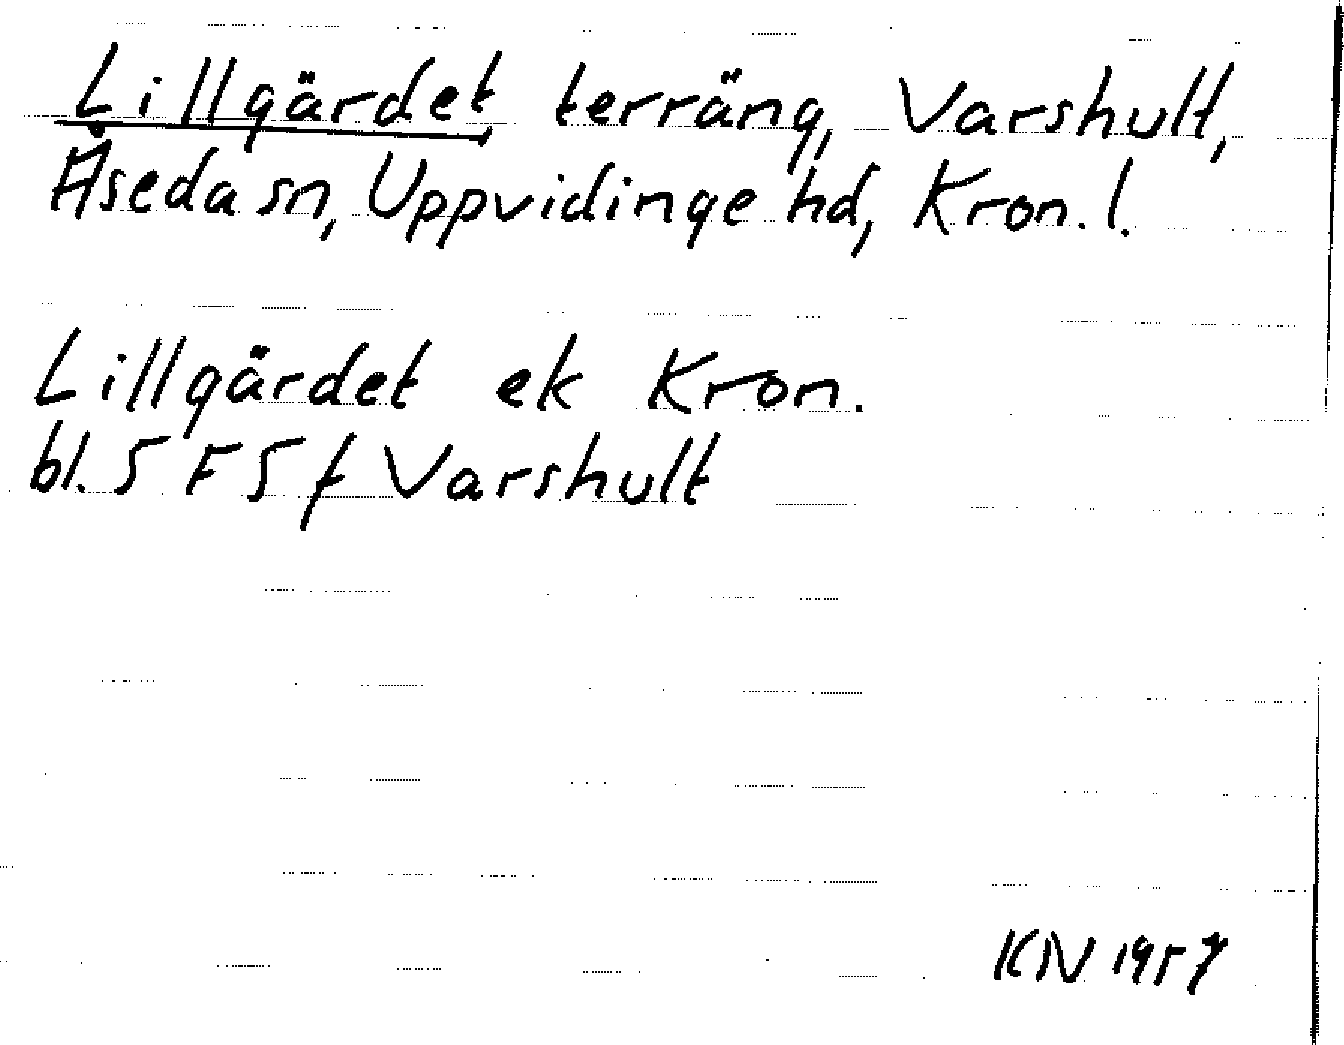 Lillgärdet, terräng, Varshult,
Åseda sn, Uppvidinge hd, Kron. l.
Lillgärdet ek Kron.
bl. 5 F 5 f Varshult
KN 1957